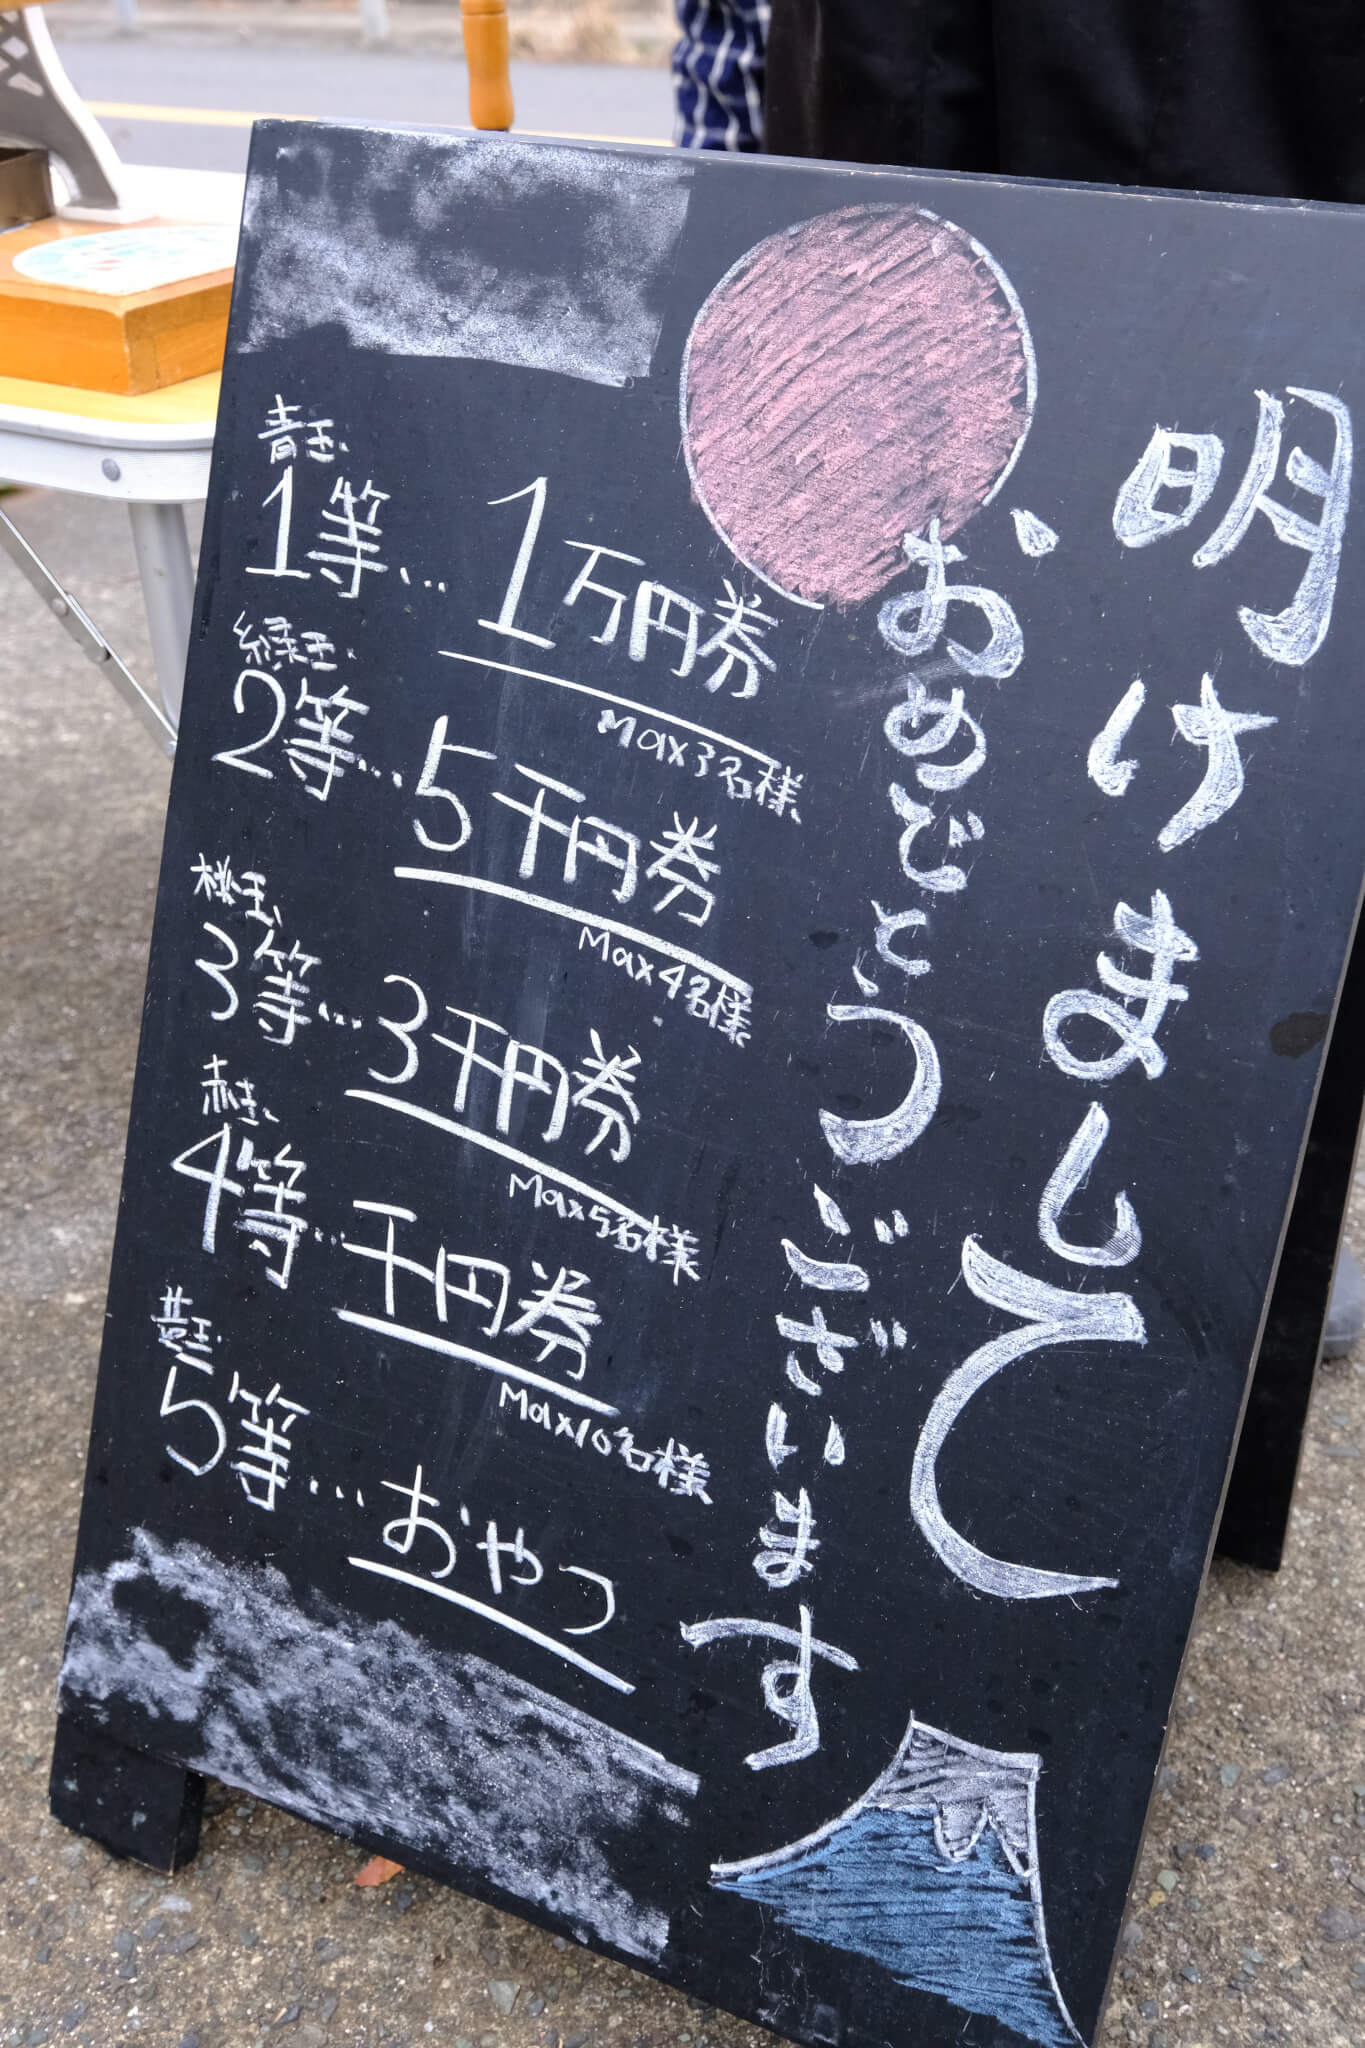 明けまして
おめでとうございます
青玉
1等… 1万円券
Max3名様
緑玉
2等… 5千円券
Max4名様
桃玉
3等… 3千円券
Max5名様
赤玉
4等… 千円券
Max10名様
黄玉
5等… おやつ